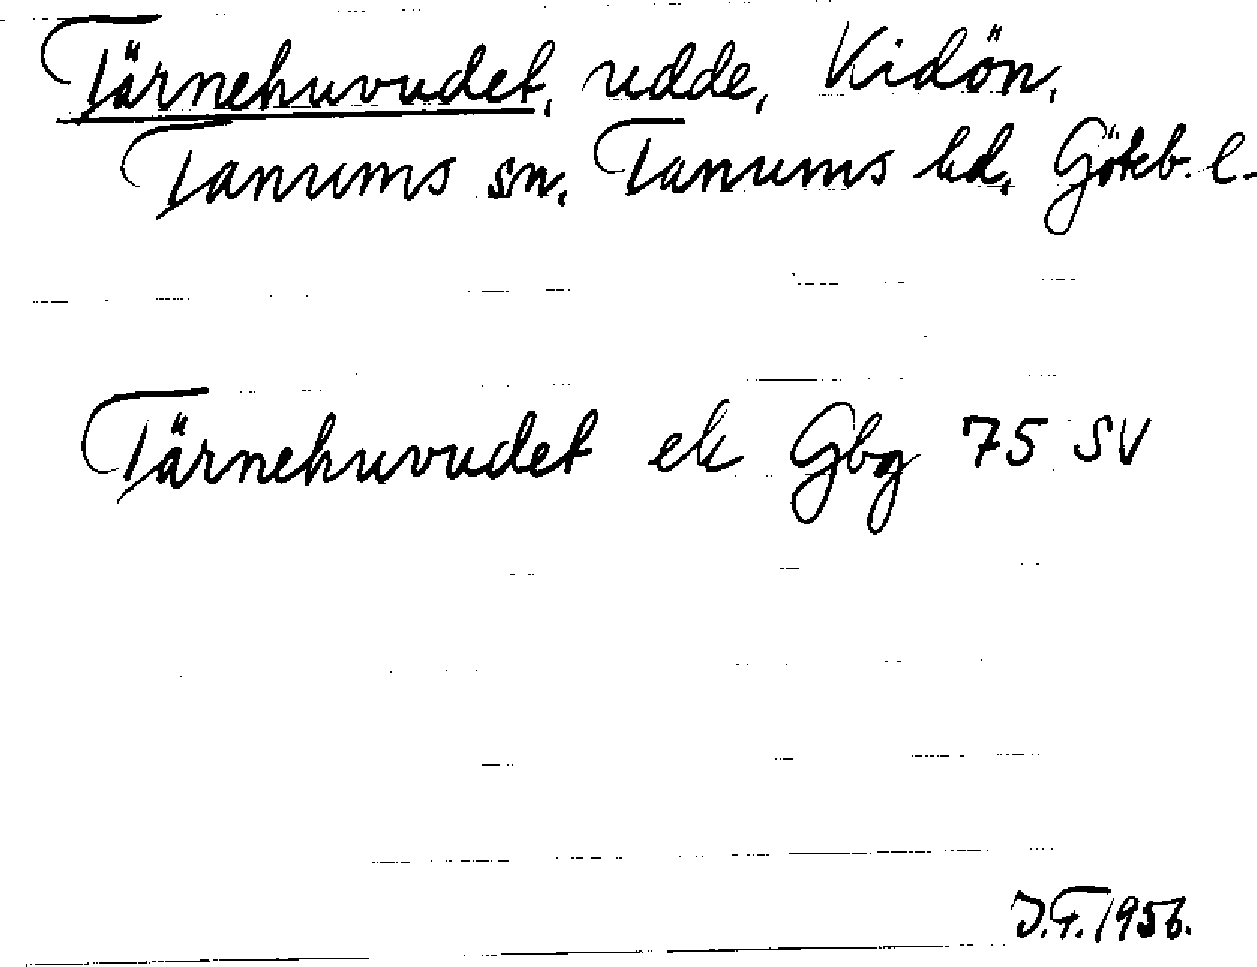 Tärnehuvudet, udde, Kidön,
Tanums sn, Tanums hd, Göteb. l.
Tärnehuvudet ek Gbg 75 SV
J.F. 1956.